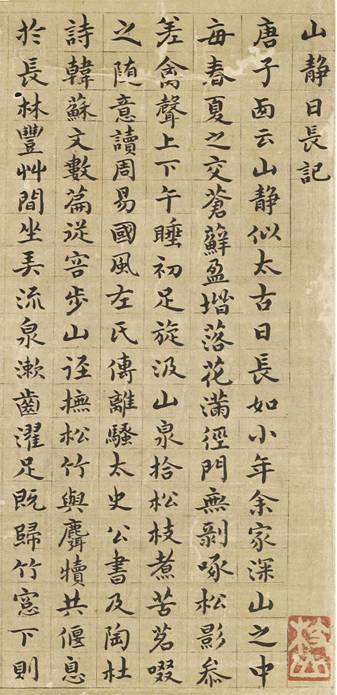 山静日長記
唐子西云山静似太古日長如小年余家深山之中
每春夏之交蒼蘚盈堦落花滿徑門無剝啄松影叅
差禽聲上下午睡初足旋汲山泉拾松枝煮苦茗啜
之随意讀周易國風左氏傳離騷太史公書及陶杜
詩韓蘇文數篇從容步山逕撫松竹與麛犢共偃息
於長林豐艸間坐弄流泉漱齒濯足既歸竹窓下則